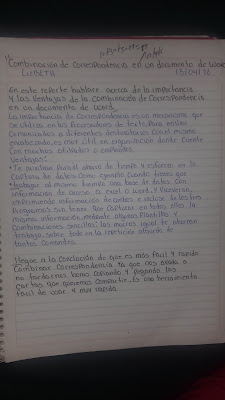 Combinación de correspondencia en un documento de Word
LIZBETH 15/04/16
En este reporte hablare acerca de la importancia
y las ventajas de la combinación de correspondencia
en un documento de word.
La importancia de correspondencia es un mecanismo que
se utiliza en los Procesadores de texto, Para enviar
comunicados a diferentes destinatarios con el mismo
encabezado, es muy útil en organización donde cuente
con muchos afiliados o empleados.
Ventajas:
* Te auxiliar para el ahorro de tiempo y esfuerzo en la
captura de datos como ejemplo cuando tienes que
trabajar al mismo tiempo una base de datos con
información de acceso a excel o word y viceversa,
exprimiendo información de
tengamos que tener que capturar en todos ellos la
misma información mediante algunas plantillas y
combinaciones sencillas; las macros igual te ahorran
trabajo sobre todo en la repetición absurda de
tantos comandos.
Llegue a la conclusión de que es más fácil y rápido
Combinar correspondencia ya que nos ayuda a
no tardarnos tanto copiando y pegando las
cartas que queremos compartir. Es una herramienta
fácil de usar y muy rápida.